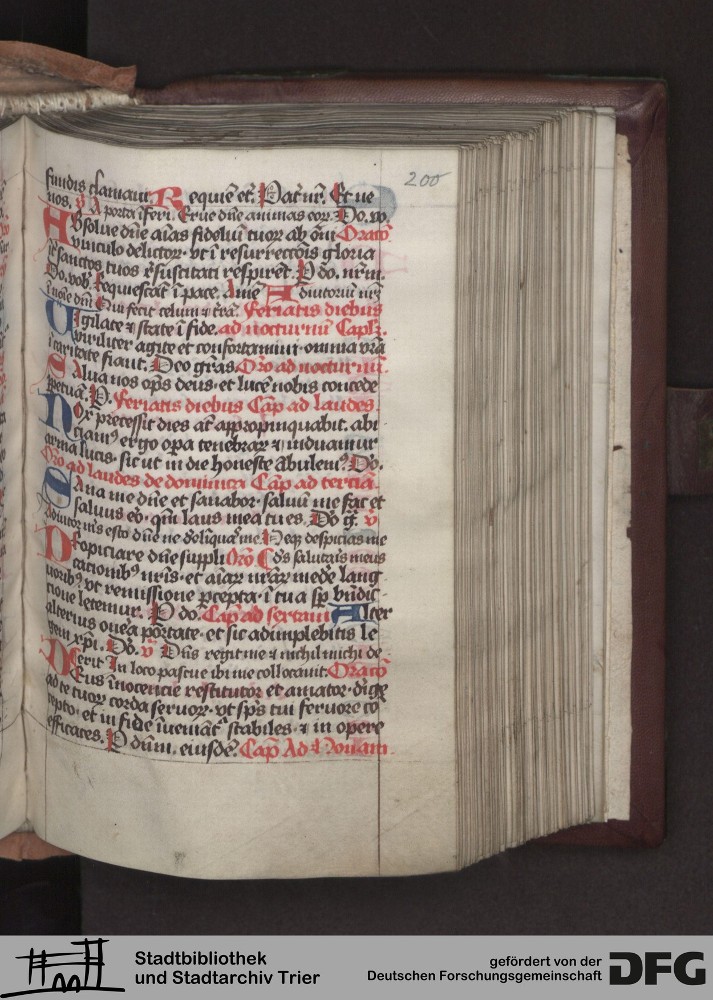 200
fundis clamant. Requiē et̄. Pat̄ nr̄. Et ne
nos. ℣ A porta īferi. Erue dn̄e animas eoꝝ. Do. vo.
Absolue dn̄e aīas fideliū tuoꝝ ab om̄i Oratō
vinculo delictoꝝ. vt ī resurrecc̄ōis gloria
īt̄ sanctos tuos r̄suscitati respirēt. P do. nr̄m.
Do. vob̄. Requiescāt ī pace. Amē Adiutoriū nr̄ȝ
ī noīe dn̄i Qui fecit celum ⁊ t̄rā. Feriatis diebus
Uigilate ⁊ state ī fide. ad nocturnū Capl̄ꝫ.
viriliter agite et confortamini. omnia vr̄a
ī caritate fiant. Deo gr̄as Or̄o ad nocturnū.
Salua nos op̄s deus. et lucē nobis concede
ꝑpetuā. P. Feriatis diebus Cap̄ ad laudes.
Nox precessit dies at̄ appropinquabit. abi
ciamꝰ ergo oꝑa tenebraꝝ ⁊ induamur
arma lucis. sicut in die honeste ābulemꝰ. Do.
Or̄o ad laudes de dominica Cap̄ ad terciā.
Sana me dn̄e et sanabor. saluū me fac et
saluus ero. qm̄ laus mea tu es. Do g̃. ℣
Adiutor m̄s esto dn̄e ne deliquaꝰ me. Neqȝ despicias me
Propiciare dn̄e suppli Or̄o ds̄ salutaris meus
cationibꝰ nr̄is. et aīaꝝ nr̄aꝝ medē lang
uoribꝰ. vt remissione ꝑcepta. ī tua sꝑ bn̄dic
tione letemur. P do. Cap̄ ad sextam Alter
alterius onēa portate. et sic adimplebitis le
gem xp̄i. Do. ℣ Dn̄s regit me ⁊ nichil michi de
erit In loco pascue ibi me collocauit. Oratō
Deus īnocencie restitutor et amator. dirige
ad te tuoꝝ corda seruoꝝ. vt sp̄s tui feruore cō
cepto. et in fide īueniāt̄ stabiles. ⁊ in opere
efficaces. P dūm. eiusdē. Cap̄ Ad Nonam
Stadtbibliothek
und Stadtarchiv Trier
gefördert von der
Deutschen Forschungsgemeinschaft DFG